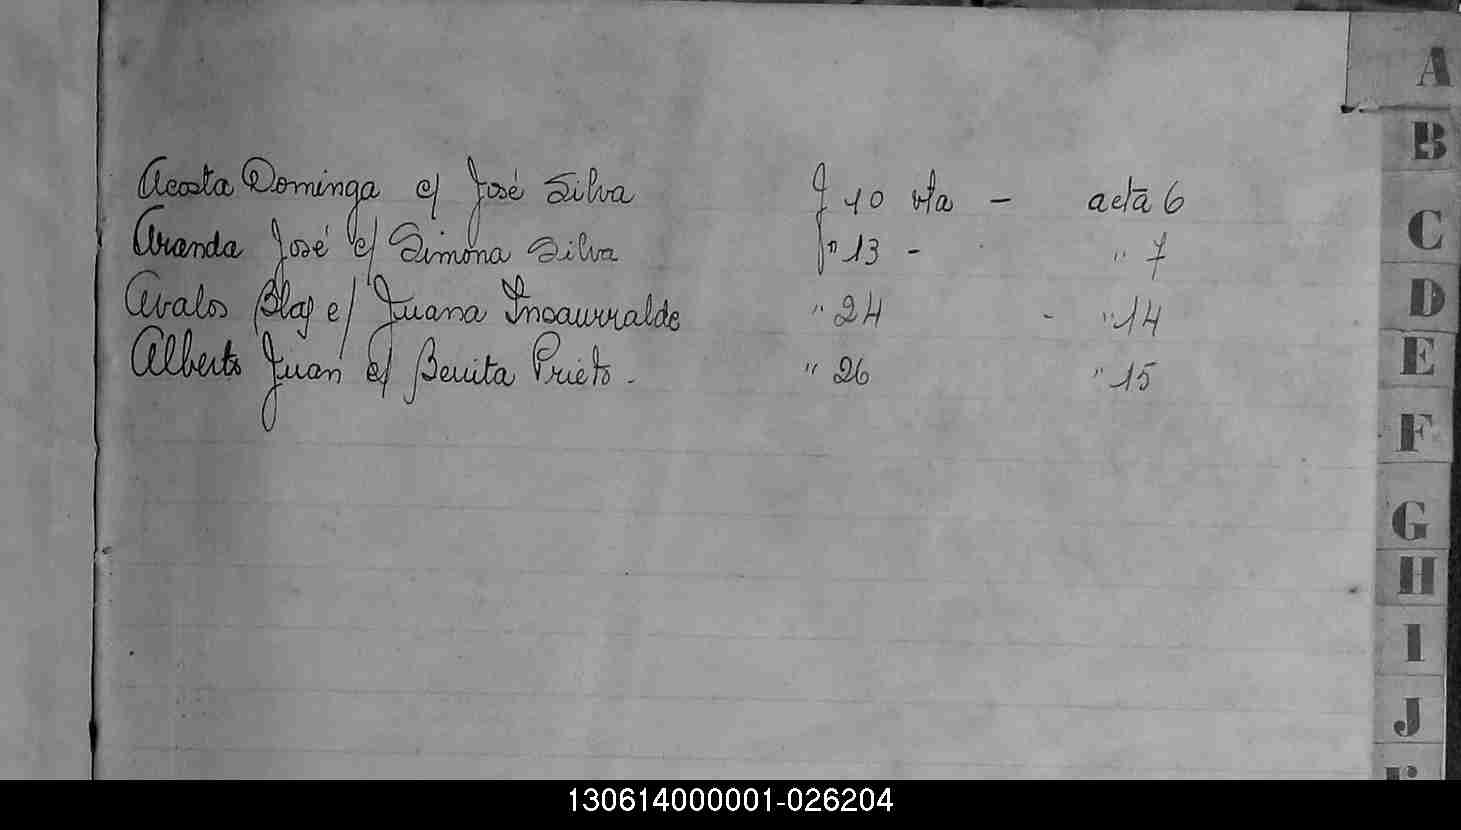 A
B
C
D
E
F
G
H
I
J
Acosta Dominga c/ José Silva f 10 vta - acta 6
Aranda José c/ Simona Silva f " 13 - " 7
Avalos Blas c/ Juana Insaurralde " 24 - " 14
Alberto Juan c/ Benita Prieto - " 26 " 15
130614000001-026204